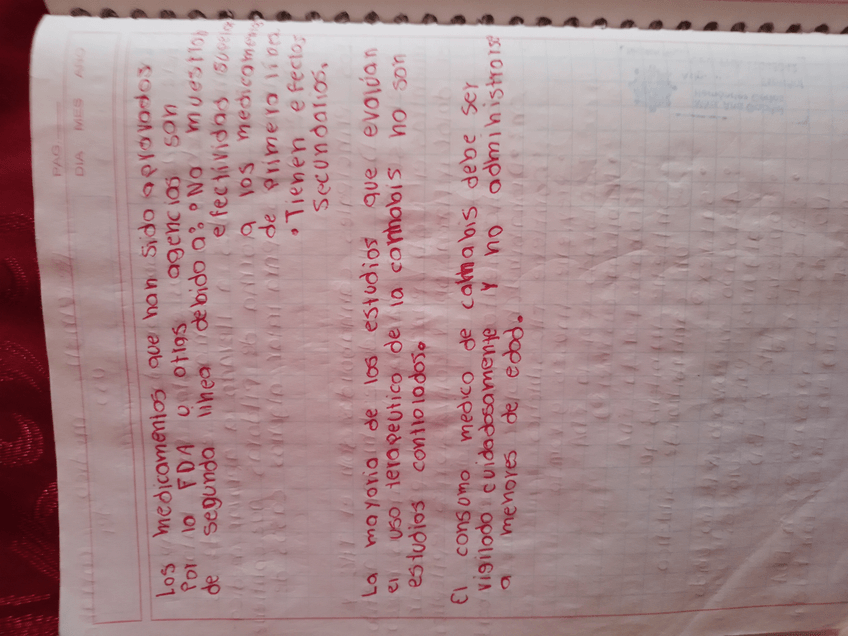 PAG.
DIA MES AÑO
Los medicamentos que han sido aprovados
Por la FDA y otras agencias son
de segunda linea debido a: • No muestran
efectividad superior
a los medicamentos
de primera linea.
• Tienen efectos
secundarios.
La mayoria de los estudios que evalúan
el uso terapeutico de la cannabis no son
estudios controlados.
El consumo medico de cannabis debe ser
vigilado cuidadosamente y no administrarse
a menores de edad.